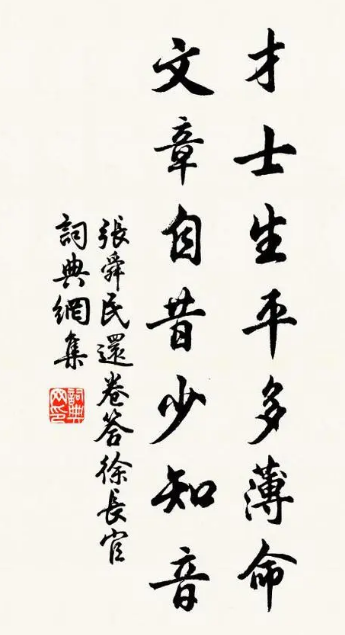 才士生平多薄命
文章自昔少知音
張舜民還卷答徐長官
詞典網集
詞典網印